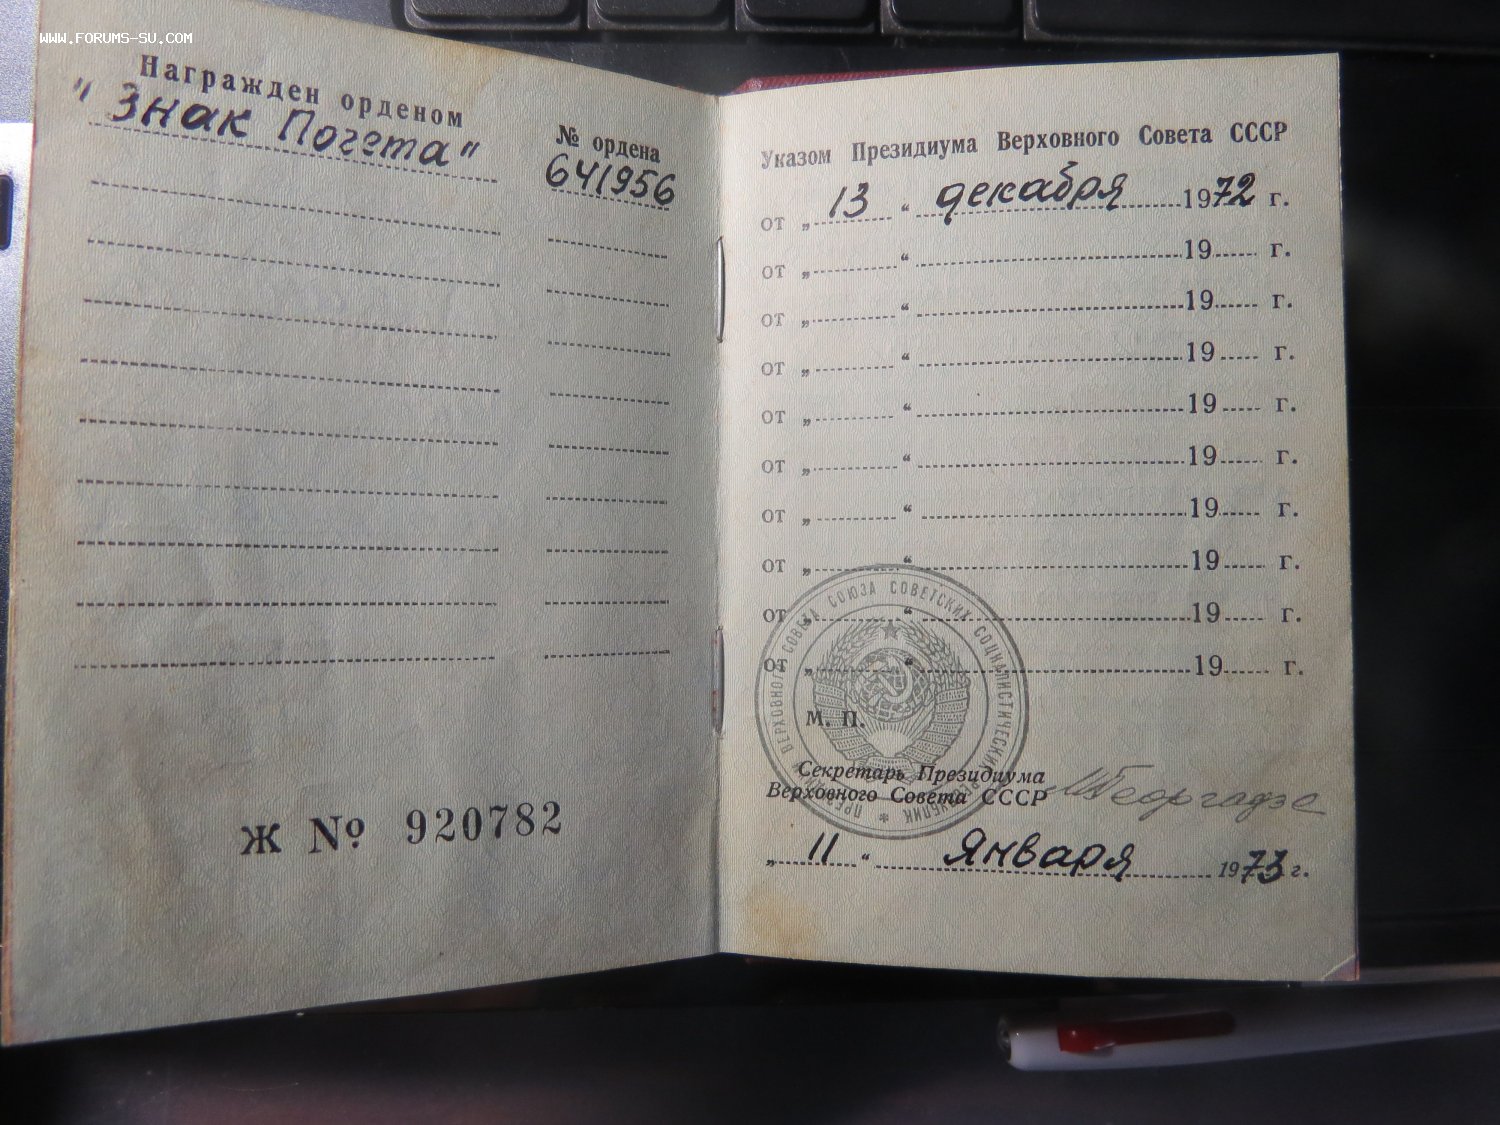 WWW.FORUMS-SU.COM
Награжден орденом
" Знак Почета"
№ ордена
641956
Ж № 920782
Указом Президиума Верховного Совета СССР
от „ 13 “ декабря 1972 г.
от „ “ 19 г.
от „ “ 19 г.
от „ “ 19 г.
от „ “ 19 г.
от „ “ 19 г.
от „ “ 19 г.
от „ “ 19 г.
от „ “ 19 г.
от „ “ 19 г.
ПРЕЗИДИУМ ВЕРХОВНОГО СОВЕТА СОЮЗА СОВЕТСКИХ СОЦИАЛИСТИЧЕСКИХ РЕСПУБЛИК
М. П.
Секретарь Президиума
Верховного Совета СССР
М Георгадзе
„ 11 “ Января 1973 г.